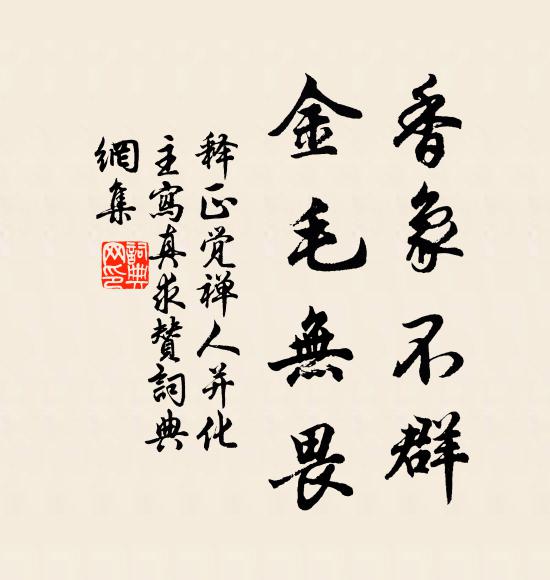 香象不群
金毛無畏
释正觉禅人并化
主寫真求赞詞典
網集
詞典
网印